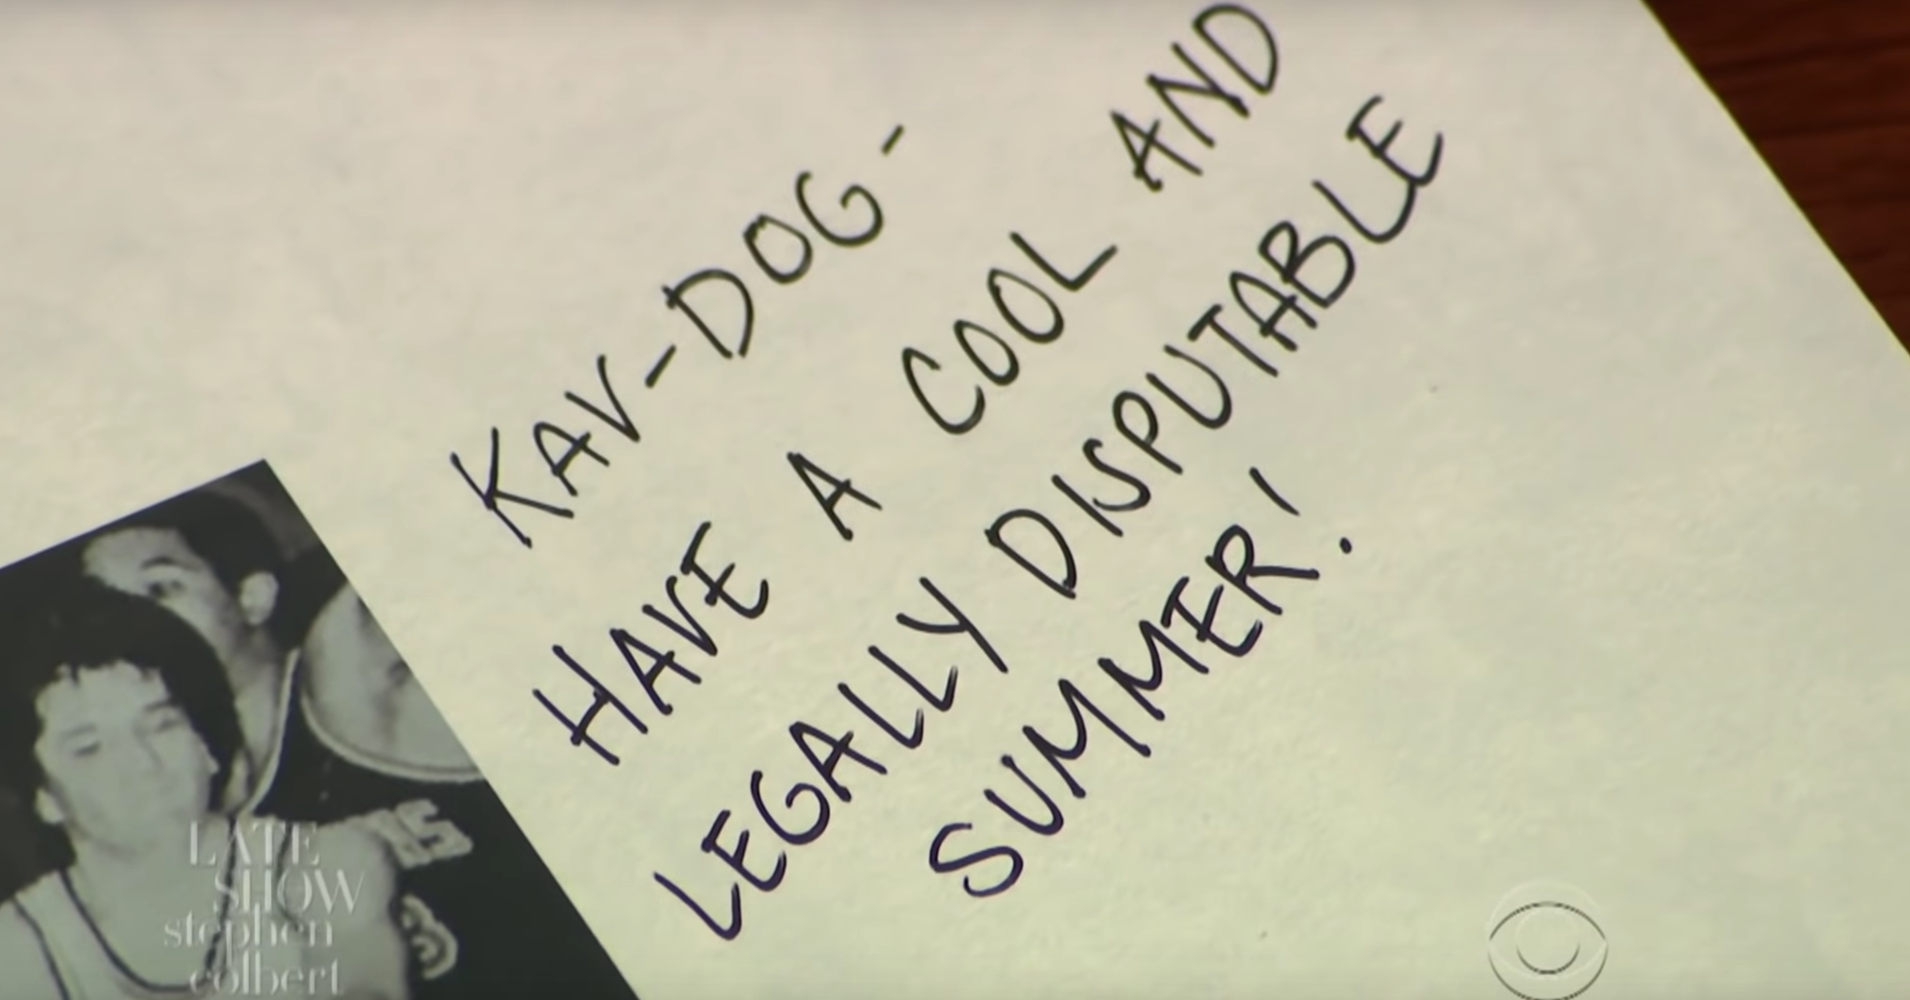 KAV-DOG-
HAVE A COOL AND
LEGALLY DISPUTABLE
SUMMER!
LATE
SHOW
stephen
colbert